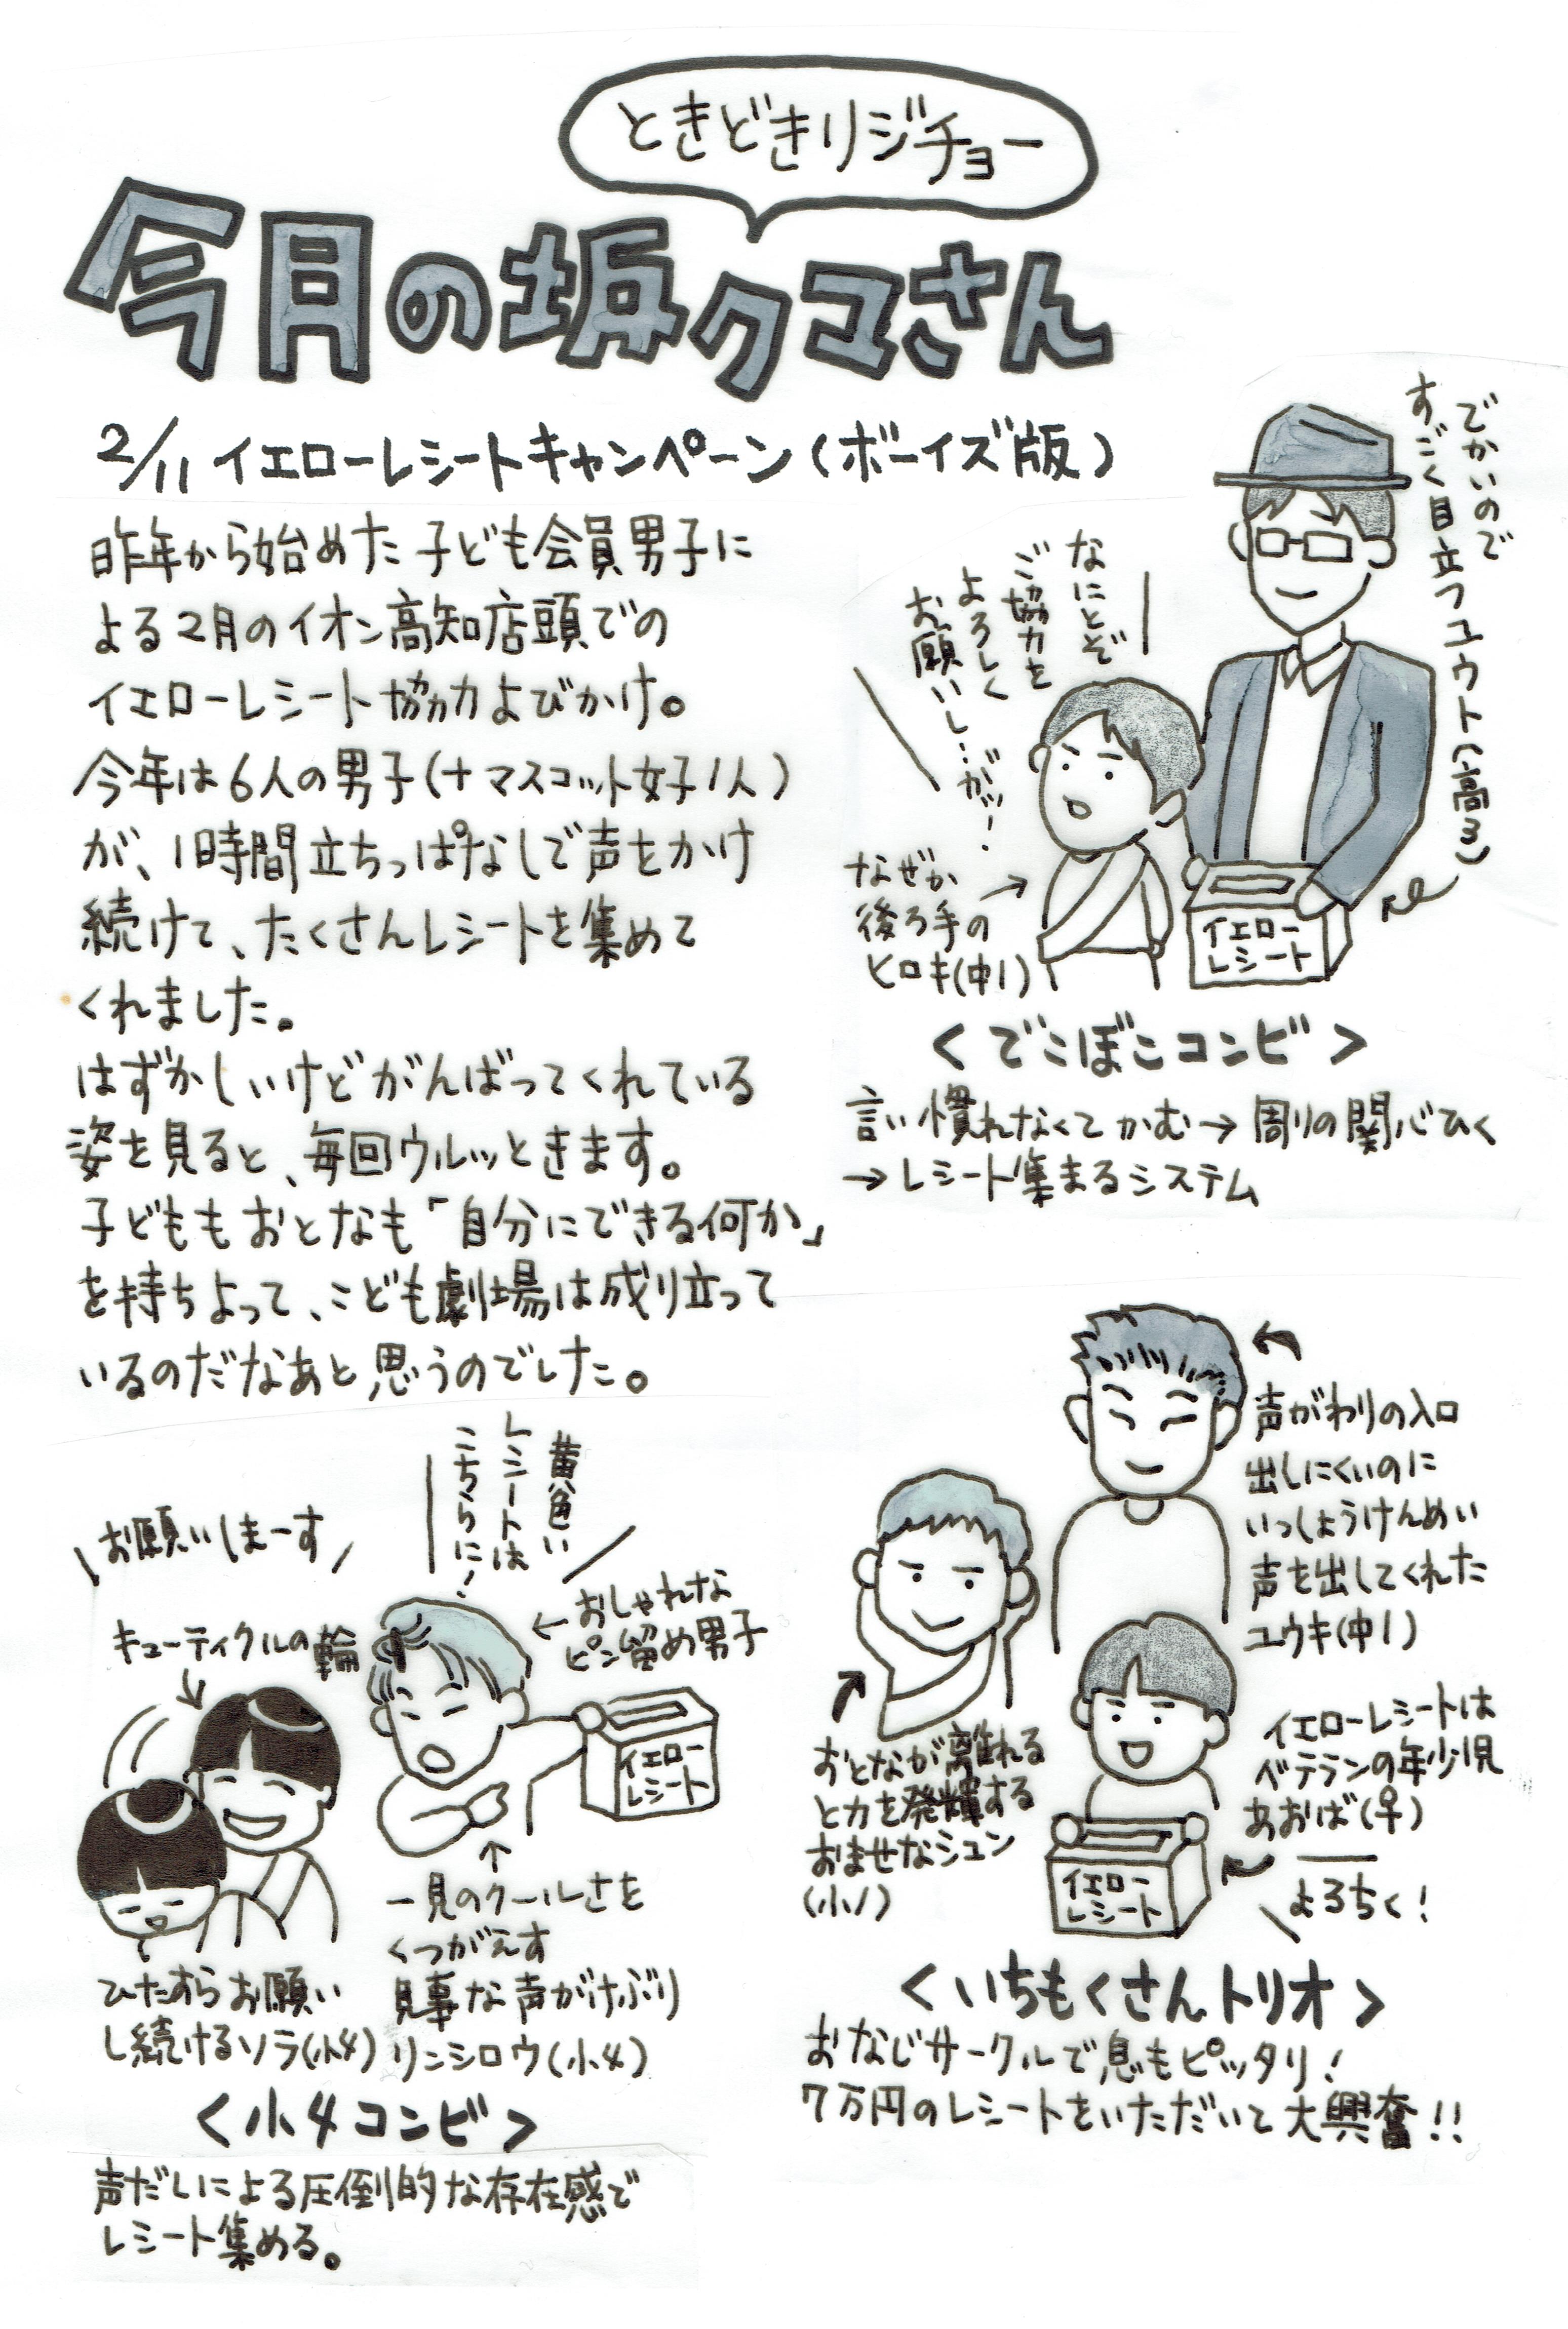 ときどきリジチョー
今月の坂クマさん
2/11 イエローレシートキャンペーン(ボーイズ版)
昨年から始めた子ども会員男子に
よる2月のイオン高知店頭での
イエローレシート協力よびかけ。
今年は6人の男子(+マスコット女子1人)
が、1時間立ちっぱなしで声をかけ
続けて、たくさんレシートを集めて
くれました。
はずかしいけどがんばってくれている
姿を見ると、毎回ウルッときます。
子どももおとなも「自分にできる何か」
を持ちよって、こども劇場は成り立って
いるのだなあと思うのでした。
でかいので
すごく目立つユウト(高3)
なにとぞ
ご協力を
よろしく
お願いし…がッ!
なぜか
後ろ手の
ヒロキ(中1)
イエロー
レシート
<でこぼこコンビ>
言い慣れなくてかむ→周りの関心ひく
→レシート集まるシステム
黄色い
レシートは
こちらに!
お願いしまーす
キューティクルの輪
おしゃれな
ピン留め男子
イエロー
レシート
一見のクールさを
くつがえす
見事な声がけぶり
リンシロウ(小4)
ひたすらお願い
し続けるソラ(小4)
<小4コンビ>
声だしによる圧倒的な存在感で
レシート集める。
声がわりの入口
出しにくいのに
いっしょうけんめい
声を出してくれた
ユウキ(中1)
おとなが離れる
と力を発揮する
おませなシュン
(小1)
イエローレシートは
ベテランの年少児
あおば(♀)
よろちく!
イエロー
レシート
<いちもくさんトリオ>
おなじサークルで息もピッタリ!
7万円のレシートをいただいて大興奮!!